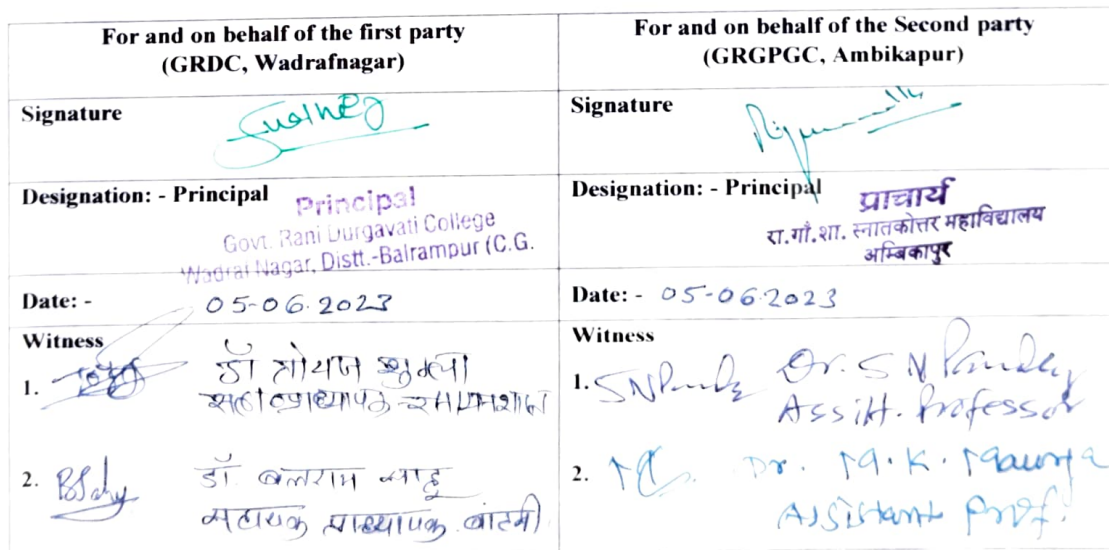 For and on behalf of the first party
(GRDC, Wadrafnagar)
Signature
Designation: - Principal
Principal
Govt. Rani Durgavati College
Wadraf Nagar, Distt.-Balrampur (C.G.
Date: - 05-06-2023
Witness
1. डॉ शुक्ला
2. डॉ. बलराम साहू
सहायक प्राध्यापक
For and on behalf of the Second party
(GRGPGC, Ambikapur)
Signature
Designation: - Principal
प्राचार्य
रा.गौ.शा. स्नातकोत्तर महाविद्यालय
अम्बिकापुर
Date: - 05-06-2023
Witness
1. SNPande Dr. S N Pandey
Assitt. Professor
2. Dr. M. K. Maurya
Assistant Prof.